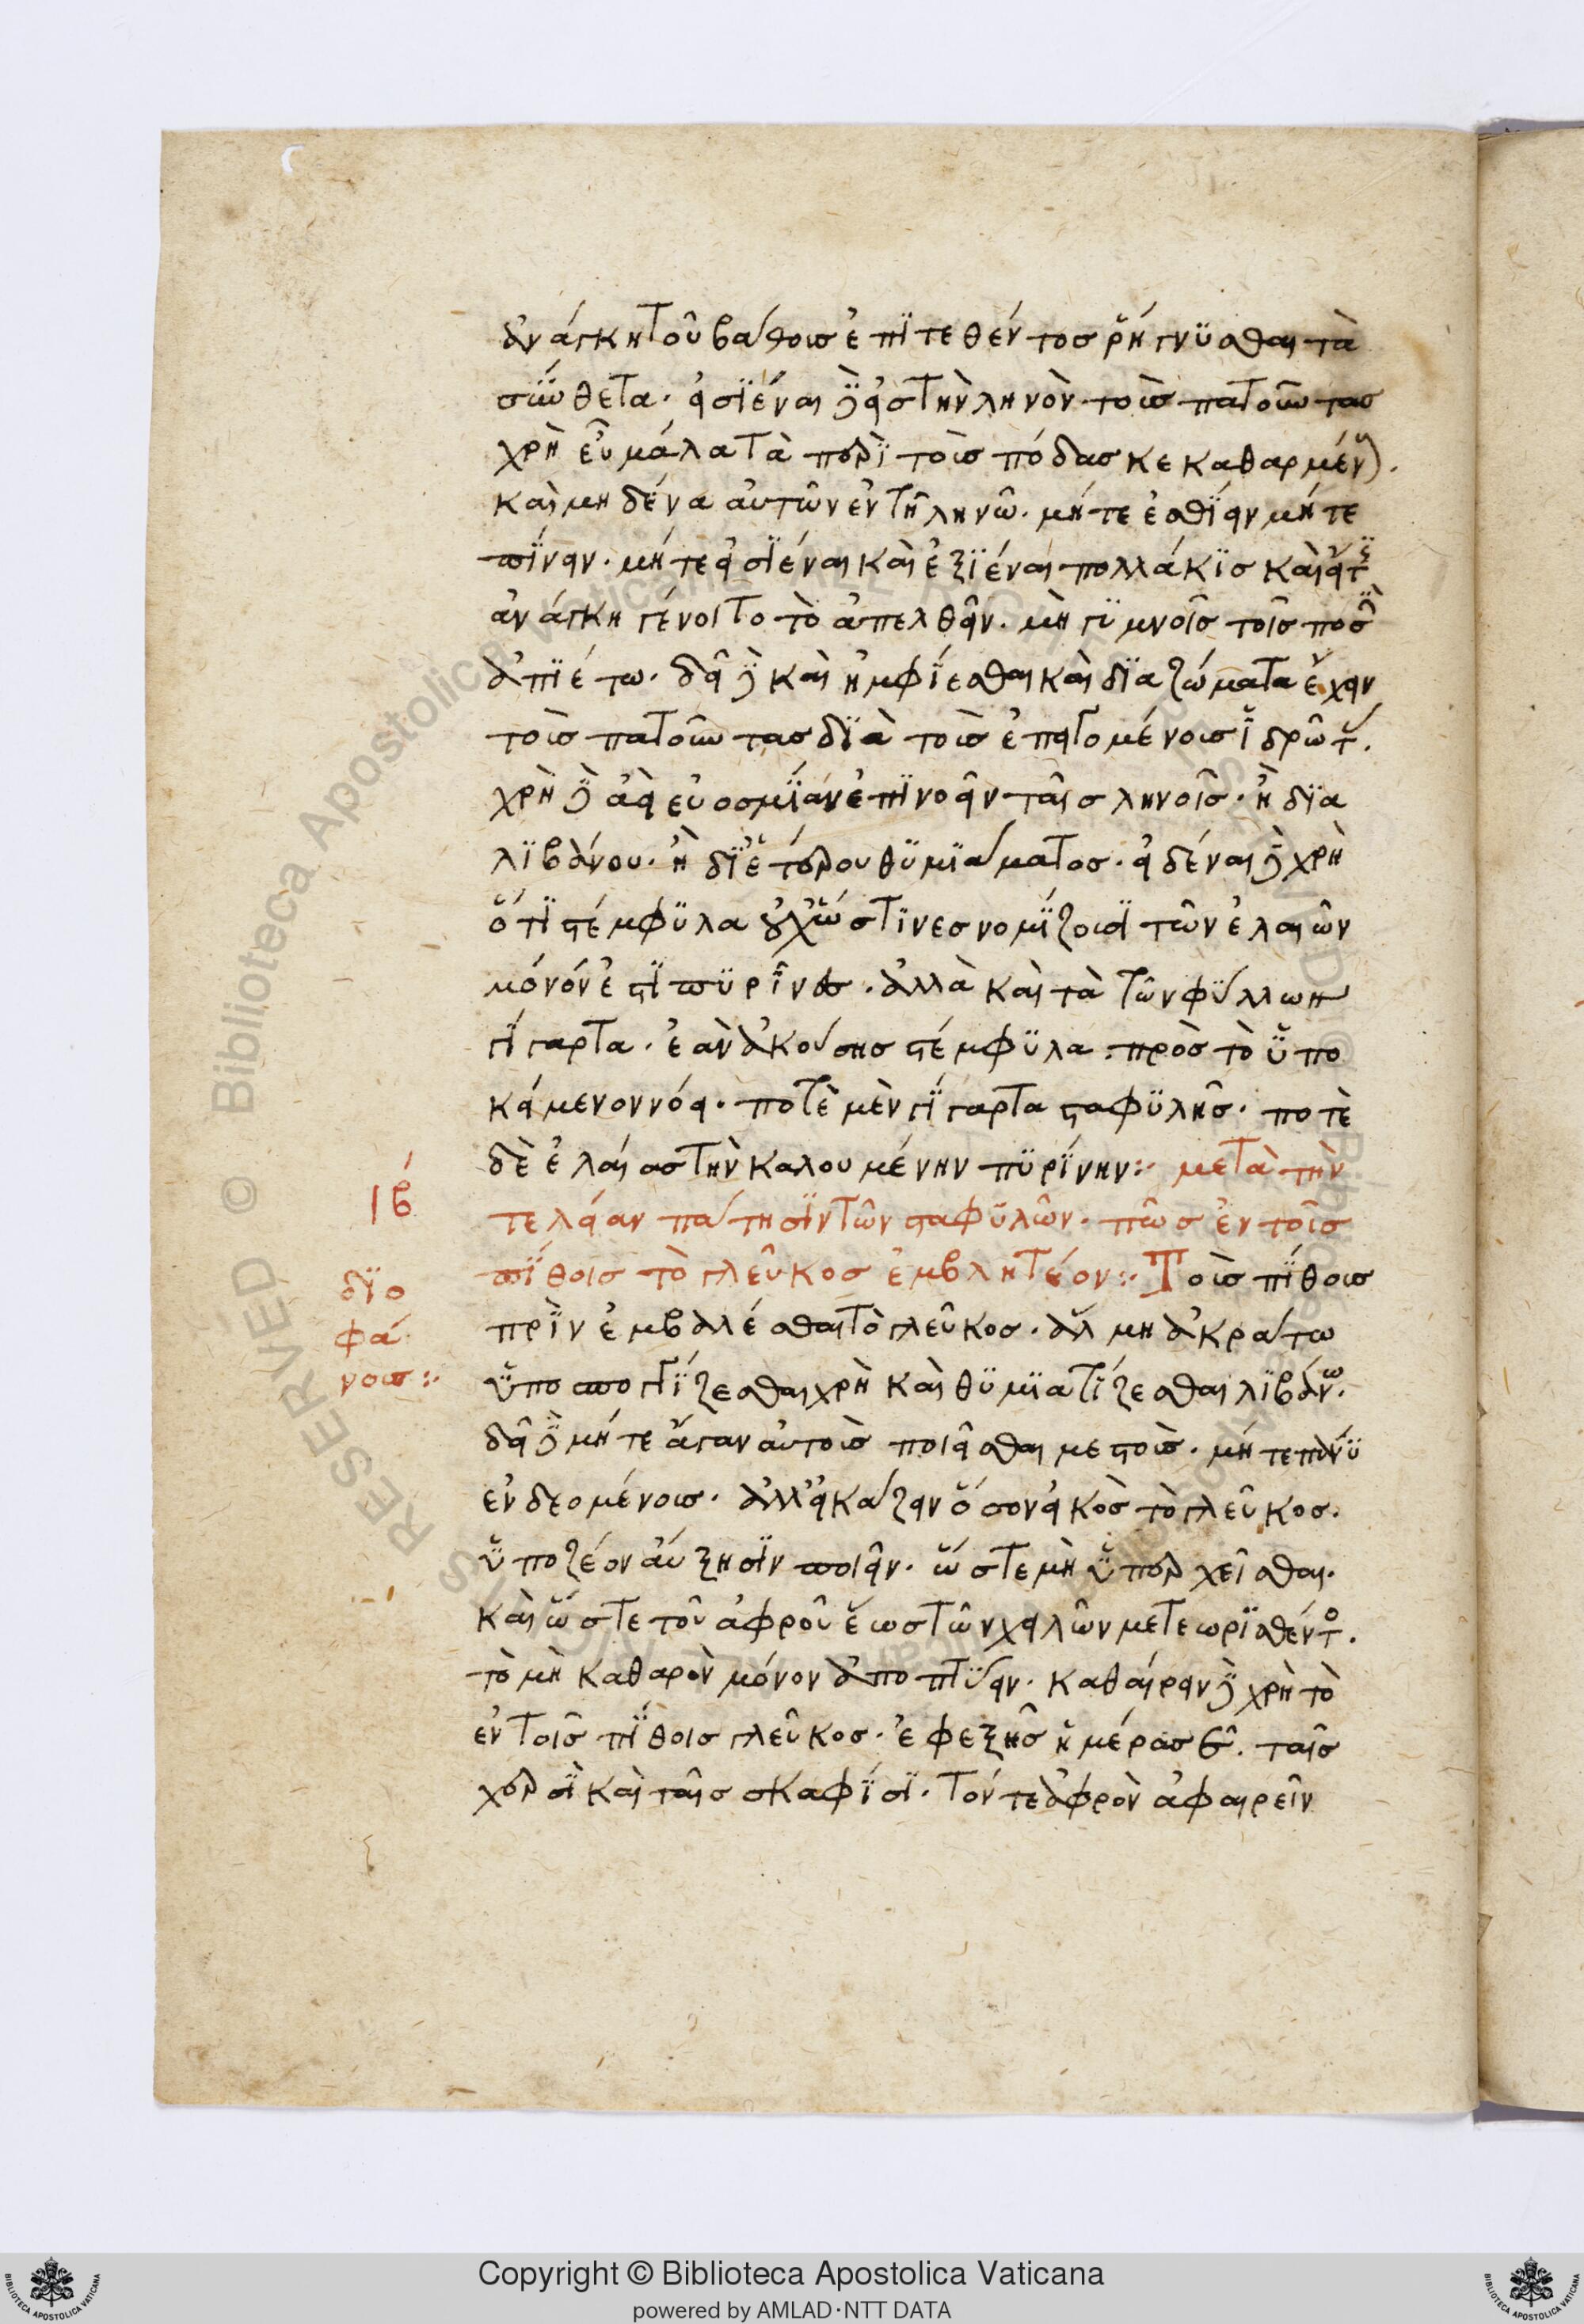 ἀνάγκη τοῦ βάρους ἐπϊτεθέντος ῥήγνϋσθαι τὰ
σύνθετα. εἰσϊέναι δὲ εἰς τὴν ληνὸν τοὺς πατοῦντας
χρὴ εὖ μάλα τὰ περὶ τοὺς πόδας κεκαθαρμένους.
καὶ μηδένα αὐτῶν ἐν τῆ ληνῶ. μήτε ἐσθίειν μήτε
πίνειν. μήτε εἰσϊέναι καὶ ἐξϊέναι πολλάκϊς καὶ εἴ τϊς
ἀνάγκη γένοιτο τὸ ἀπελθεῖν. μὴ γϋμνοῖς τοῖς ποσὶ
ἀπϊέτω. δεῖ δὲ καὶ ἠμφίεσθαι καὶ δϊαζώματα ἔχειν
τοὺς πατοῦντας δϊὰ τοὺς ἐπειγομένους ἱδρῶτας.
χρὴ δὲ ἀεὶ εὐοσμίαν ἐπϊνοεῖν ταῖς ληνοῖς. ἢ δϊα
λϊβάνου. ἢ δϊ' ἑτέρου θϋμϊάματος. εἰδέναι δὲ χρὴ
ὅτϊ στέμφϋλα οὐχ ὥς τϊνες νομίζουσϊ τῶν ἐλαιῶν
μόνόν ἐστϊ πϋρῖνος. ἀλλὰ καὶ τὰ τῶν φύλλων ἢ
γίγαρτα. ἐὰν ἀκούσης στέμφϋλα. πρὸς τὸ ὑπο
κείμενον νόει. ποτὲ μὲν γίγαρτα σταφϋλῆς. ποτὲ
δὲ ἐλαίας τὴν καλουμένην πϋρίνην:· μετὰ τὴν
ιβ τελείαν πάτησϊν τῶν σταφϋλῶν. πῶς ἐν τοῖς
δϊοφάνους:· πίθοις τὸ γλεῦκος ἐμβλητέον:· Τοὺς πίθους
πρῒν ἐμβαλέσθαι τὸ γλεῦκος. ἅλμη ἀκράτω
ὑποσπογγίζεσθαι χρὴ καὶ θϋμϊατίζεσθαι λϊβάνω.
δεῖ δὲ μήτε ἄγαν αὐτοὺς ποιεῖσθαι μεστοὺς. μήτε πάνϋ
ἐνδεομένους. ἀλλ' εἰκάζειν ὅσον εἰκὸς τὸ γλεῦκος.
ὑποζέον αὔξησϊν ποιεῖν. ὥστε μὴ ὑπερχεῖσθαι.
καὶ ὥστε τοῦ ἀφροῦ ἕως τῶν χειλῶν μετεωρϊσθέντος.
τὸ μὴ καθαρὸν μόνον ἀποπτύειν. καθαίρειν δὲ χρὴ τὸ
ἐν τοῖς πίθοις γλεῦκος. ἐφεξῆς ἡμέρας ϛ. ταῖς
χερσὶ καὶ ταῖς σκαφίσϊ. τόν τε ἀφρὸν ἀφαιρεῖν